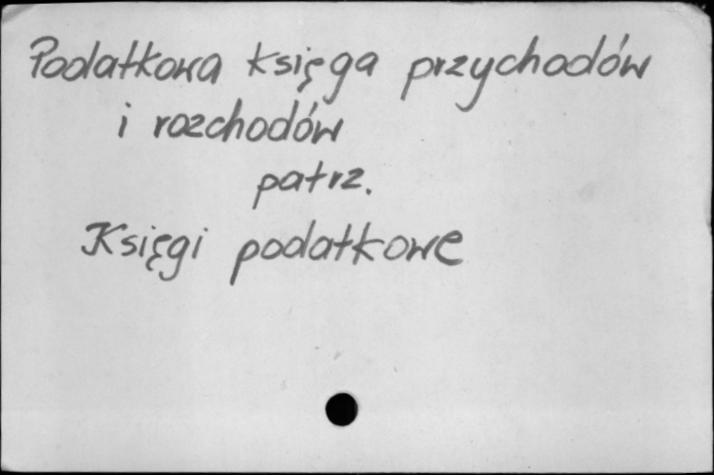 Podatkowa księga przychodów
i rozchodów
patrz.
Księgi podatkowe